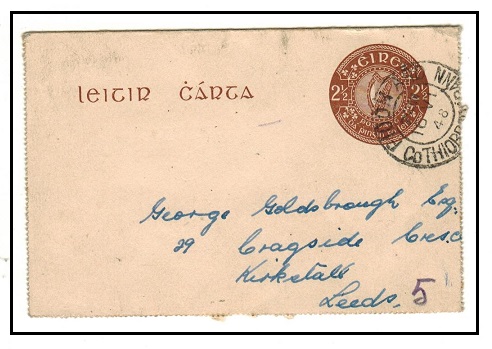 LEITIR ĊÁRTA
ÉIRE
2½ 2½
Co THIOBR
48
George Goldsbrough Esq.
29 Cragside Cres.
Kirkstall
Leeds. 5